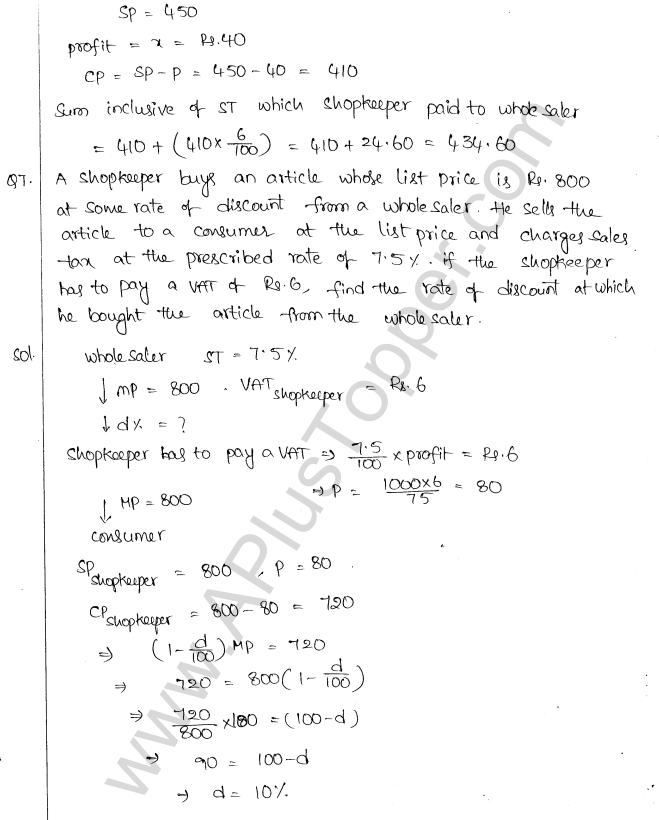 SP = 450
profit = x = Rs.40
CP = SP - P = 450 - 40 = 410
Sum inclusive of ST which shopkeeper paid to whole saler
= 410 + (410 × 6/100) = 410 + 24.60 = 434.60
Q7. A shopkeeper buys an article whose list price is Rs. 800
at some rate of discount from a whole saler. He sells the
article to a consumer at the list price and charges sales
tax at the prescribed rate of 7.5%. if the shopkeeper
has to pay a VAT of Rs.6, find the rate of discount at which
he bought the article from the whole saler.
Sol. whole saler ST = 7.5%
↓ MP = 800 . VAT shopkeeper = Rs. 6
↓ d% = ?
Shopkeeper has to pay a VAT ⇒ 7.5/100 × profit = Rs.6
⇒ P = 1000×6/75 = 80
↓ MP = 800
consumer
SP shopkeeper = 800 , P = 80 .
CP shopkeeper = 800 - 80 = 720
⇒ (1 - d/100) MP = 720
⇒ 720 = 800 (1 - d/100)
⇒ 720/800 × 100 = (100 - d)
⇒ 90 = 100 - d
⇒ d = 10%.
www.APlusTopper.com